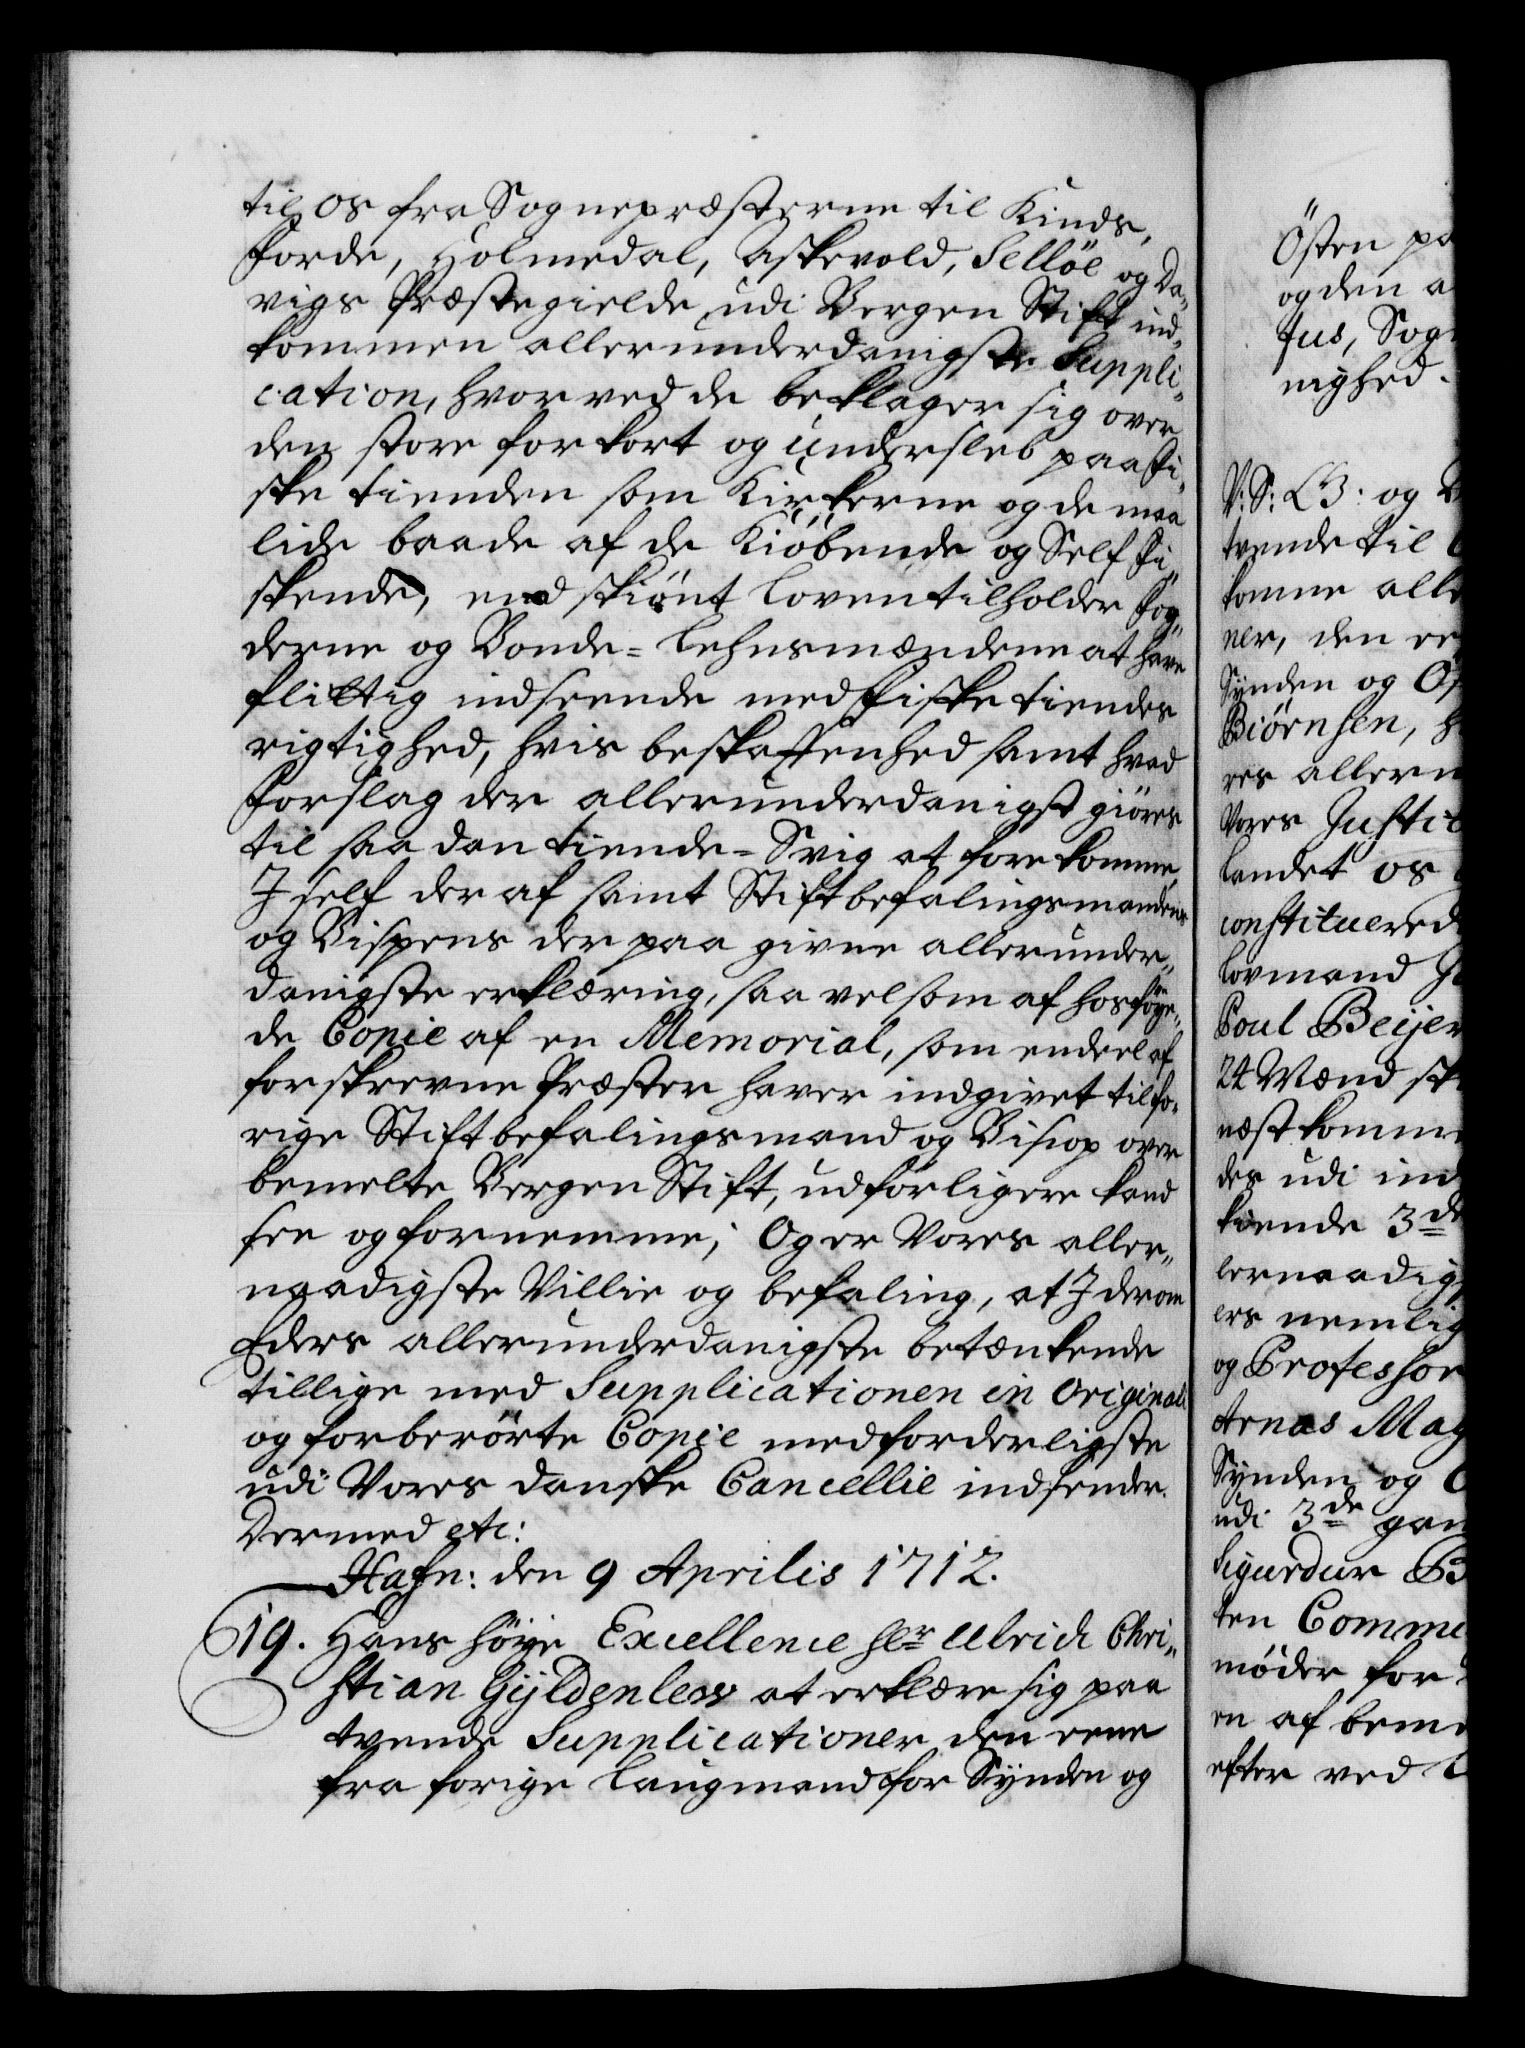 til os fra Sognepræsterne til Kinds,
Forde, Holmedal, Askevold, Selløe og Da-
vigs Præstegielde udi Bergen Stift ind-
kommen allerunderdanigste Suppli-
cation, hvorved de beklager sig over
den store forkort og Undersleb paa Fi-
ske tienden som Kirkerne og de maa
lide baade af de Kiøbende og Self Fi-
skende, end skiønt Loven tilholder Fog-
derne og Bonde-Lehnsmændene at have
flittig indseende med Fiske tiendes
rigtighed, hvis beskaffenhed samt hvad
Forslag der allerunderdanigst giøres
til saadan tiende-Svig at forekomme,
I self der af samt Stiftbefalingsmandens
og Bispens der paa givne allerunder-
danigste erklæring, saa vel som af hosføye-
de Copie af en Memorial, som endeel af
forskrevne Præster haver indgivet til fo-
rige Stiftbefalingsmand og Bisiop over
bemelte Bergen Stift, udførligere kand
see og fornemme; Og er Vores aller-
naadigste Villie og befaling, at I derom
Eders allerunderdanigste betænkende
tillige med Supplicationen in Originali
og forberørte Copie med forderligste
udi Vores danske Cancellie indsender.
Dermed etc:
Hafn: den 9 Aprilis 1712.
19. Hans høye Excellence Hr Ulrich Chri-
stian Gyldenlew at erklære sig paa
tvende Supplicationer den eene
fra forige Laugmand for Synden og
Østen pa
og den a
tus, Sog
nighed.
V: S: G: og
tvende til
komne alle
ner, den ee
Synden og Ø
Biørnsen, h
res allern
Vores Justit
Landet os
constituered
Lovmand
Poul Beijer
24 Mænd sk
næst komme
des udi ind
kiende 3de
lernaadig
ers nemlig
og Professor
Arnas Mag
Synden og
udi 3de gan
Sigurdur B
ten Comme
møder for
en af beme
efter ved